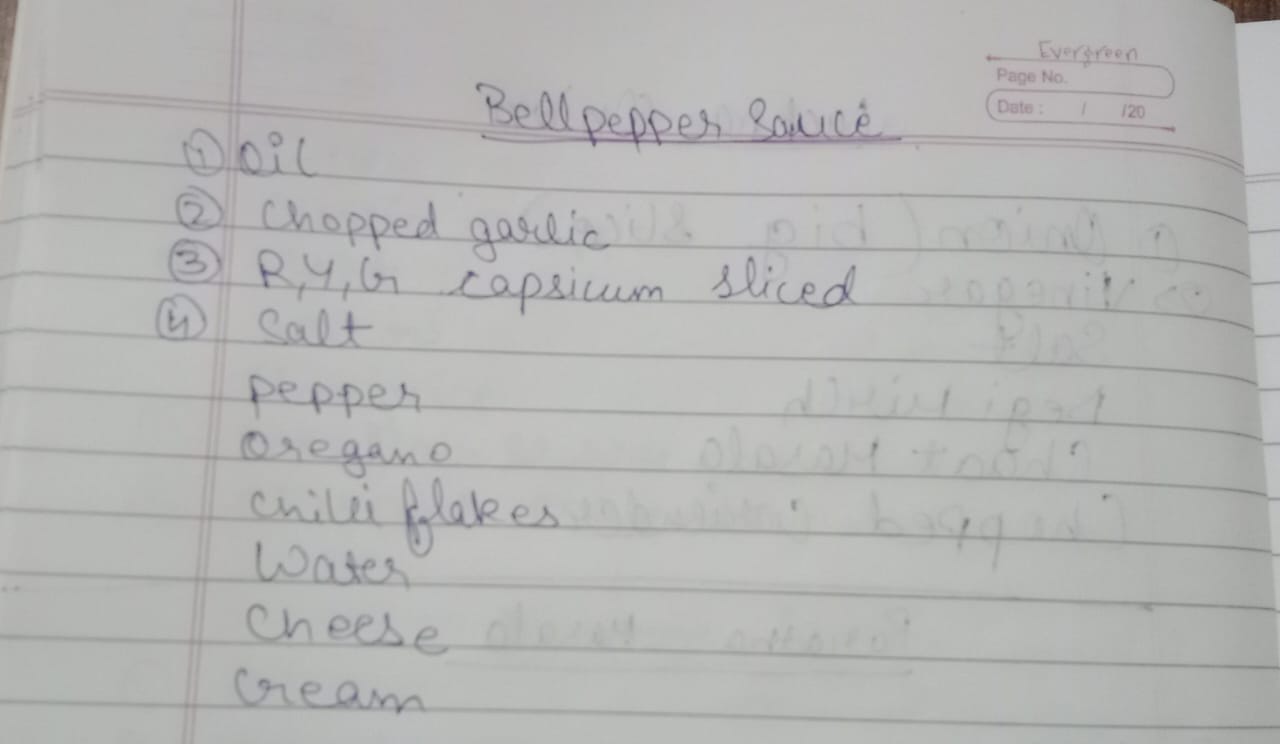 Evergreen
Page No.
Date : / /20
Bellpepper Sauce
① Oil
② Chopped garlic
③ R, Y, G capsicum sliced
④ Salt
Pepper
Oregano
Chilli flakes
Water
Cheese
Cream